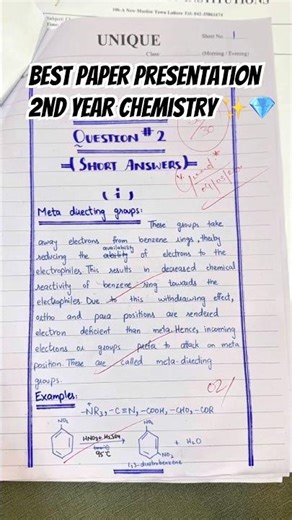 106-A New Muslim Town Lahore
UNIQUE
Sheet No. 1
Class
(Morning / Evening)
BEST PAPER PRESENTATION
2ND YEAR CHEMISTRY ✨💎
QUESTION # 2
(SHORT ANSWERS)
(i)
Meta directing groups:
These groups take
away electrons from benzene rings, thereby
reducing the availability of electrons to the
electrophiles. This results in decreased chemical
reactivity of benzene ring towards the
electrophiles. Due to this withdrawing effect,
ortho and para positions are rendered
electron deficient than meta. Hence, incoming
electrons or groups prefer to attack on meta
position. These are called meta-directing
groups.
02
Examples:
-N⁺R₃, -C≡N, -COOH, -CHO, -COR
NO₂
NO₂
HNO₃ + H₂SO₄
95°C
+ H₂O
NO₂
1,3-dinitrobenzene